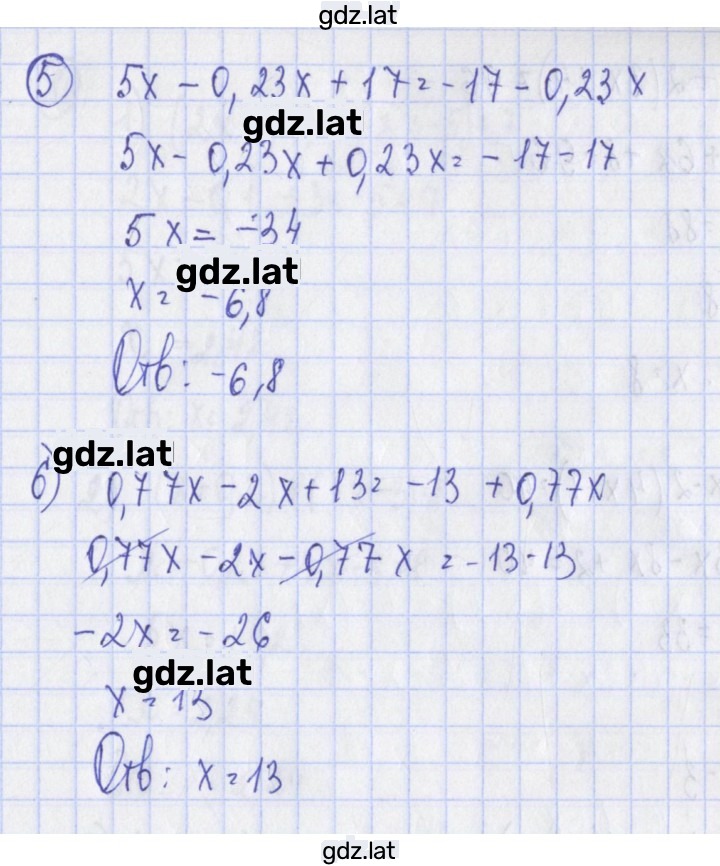 gdz.lat
5 5x - 0,23x + 17 = -17 - 0,23x
gdz.lat
5x - 0,23x + 0,23x = -17 - 17
5x = -34
gdz.lat
x = -6,8
Отв: -6,8
gdz.lat
б) 0,77x - 2x + 13 = -13 + 0,77x
0,77x - 2x - 0,77x = -13 - 13
-2x = -26
gdz.lat
x = 13
Отв: x = 13
gdz.lat